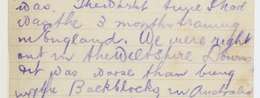 was. The worst time I had
was the 3 months training
in England. We were right
out in the Wiltshire Downs
it was worse than being
in the Backblocks in Australia